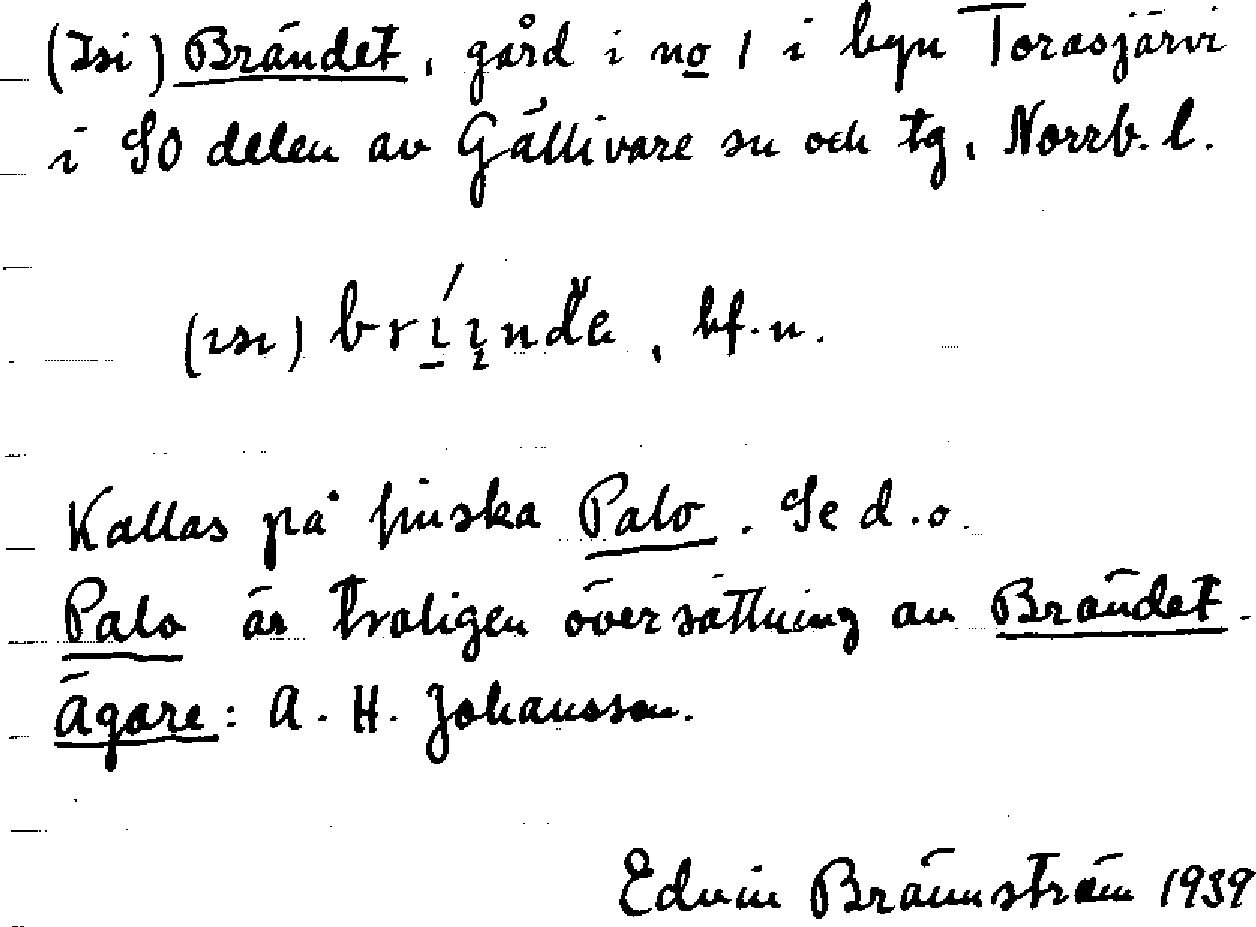 (Isi) Brändet, gård i no 1 i byn Torasjärvi
i SO delen av Gällivare sn och tg, Norrb. l.
(ısı) , bf. n.
Kallas på finska Palo. Se d.o.
Palo är troligen översättning av Brändet.
Ägare: A. H. Johansson.
Edvin Brännström 1939